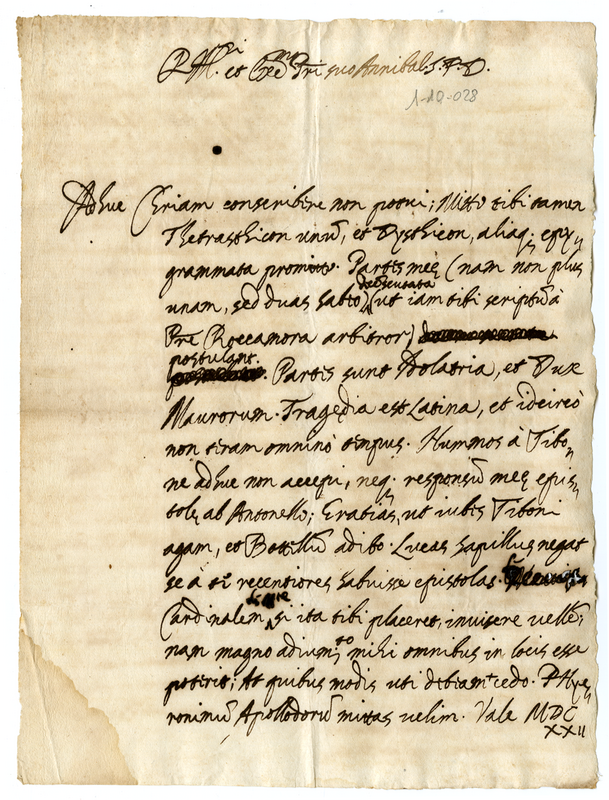 et suo Annibal. S. P. D.
1-10-028
Adhuc conscribere non potui; Mitto tibi tamen
Thetrasthicon unū, et Dysthicon, aliaq; epy,,
grammata promitto. Partis meę (nam non plus
decensurata
unam, sed duas habeo) (ut iam tibi scriptū à
Pre Roccamora arbitror)
postulant.
Partis sunt Idolatria, et Dux
Maurorum. Tragędia est Latina, et idcircò
non omninò tempus. Nummos à Tibo,,
ne adhuc non accepi, neq; responsū meę epis,,
tolę ab Antonello; Gratias, ut iubes Tiboni
agam, et adibo. Lucas negat
se à te recentiores habuisse epistolas.
Cardinalem si ita tibi placeret, invisere velle;
nam magno mihi omnibus in locis esse
poterit; At quibus modis uti debiam cedo. P Hye,,
ronimū Apollodorū mittas velim. Vale MDC
XXII